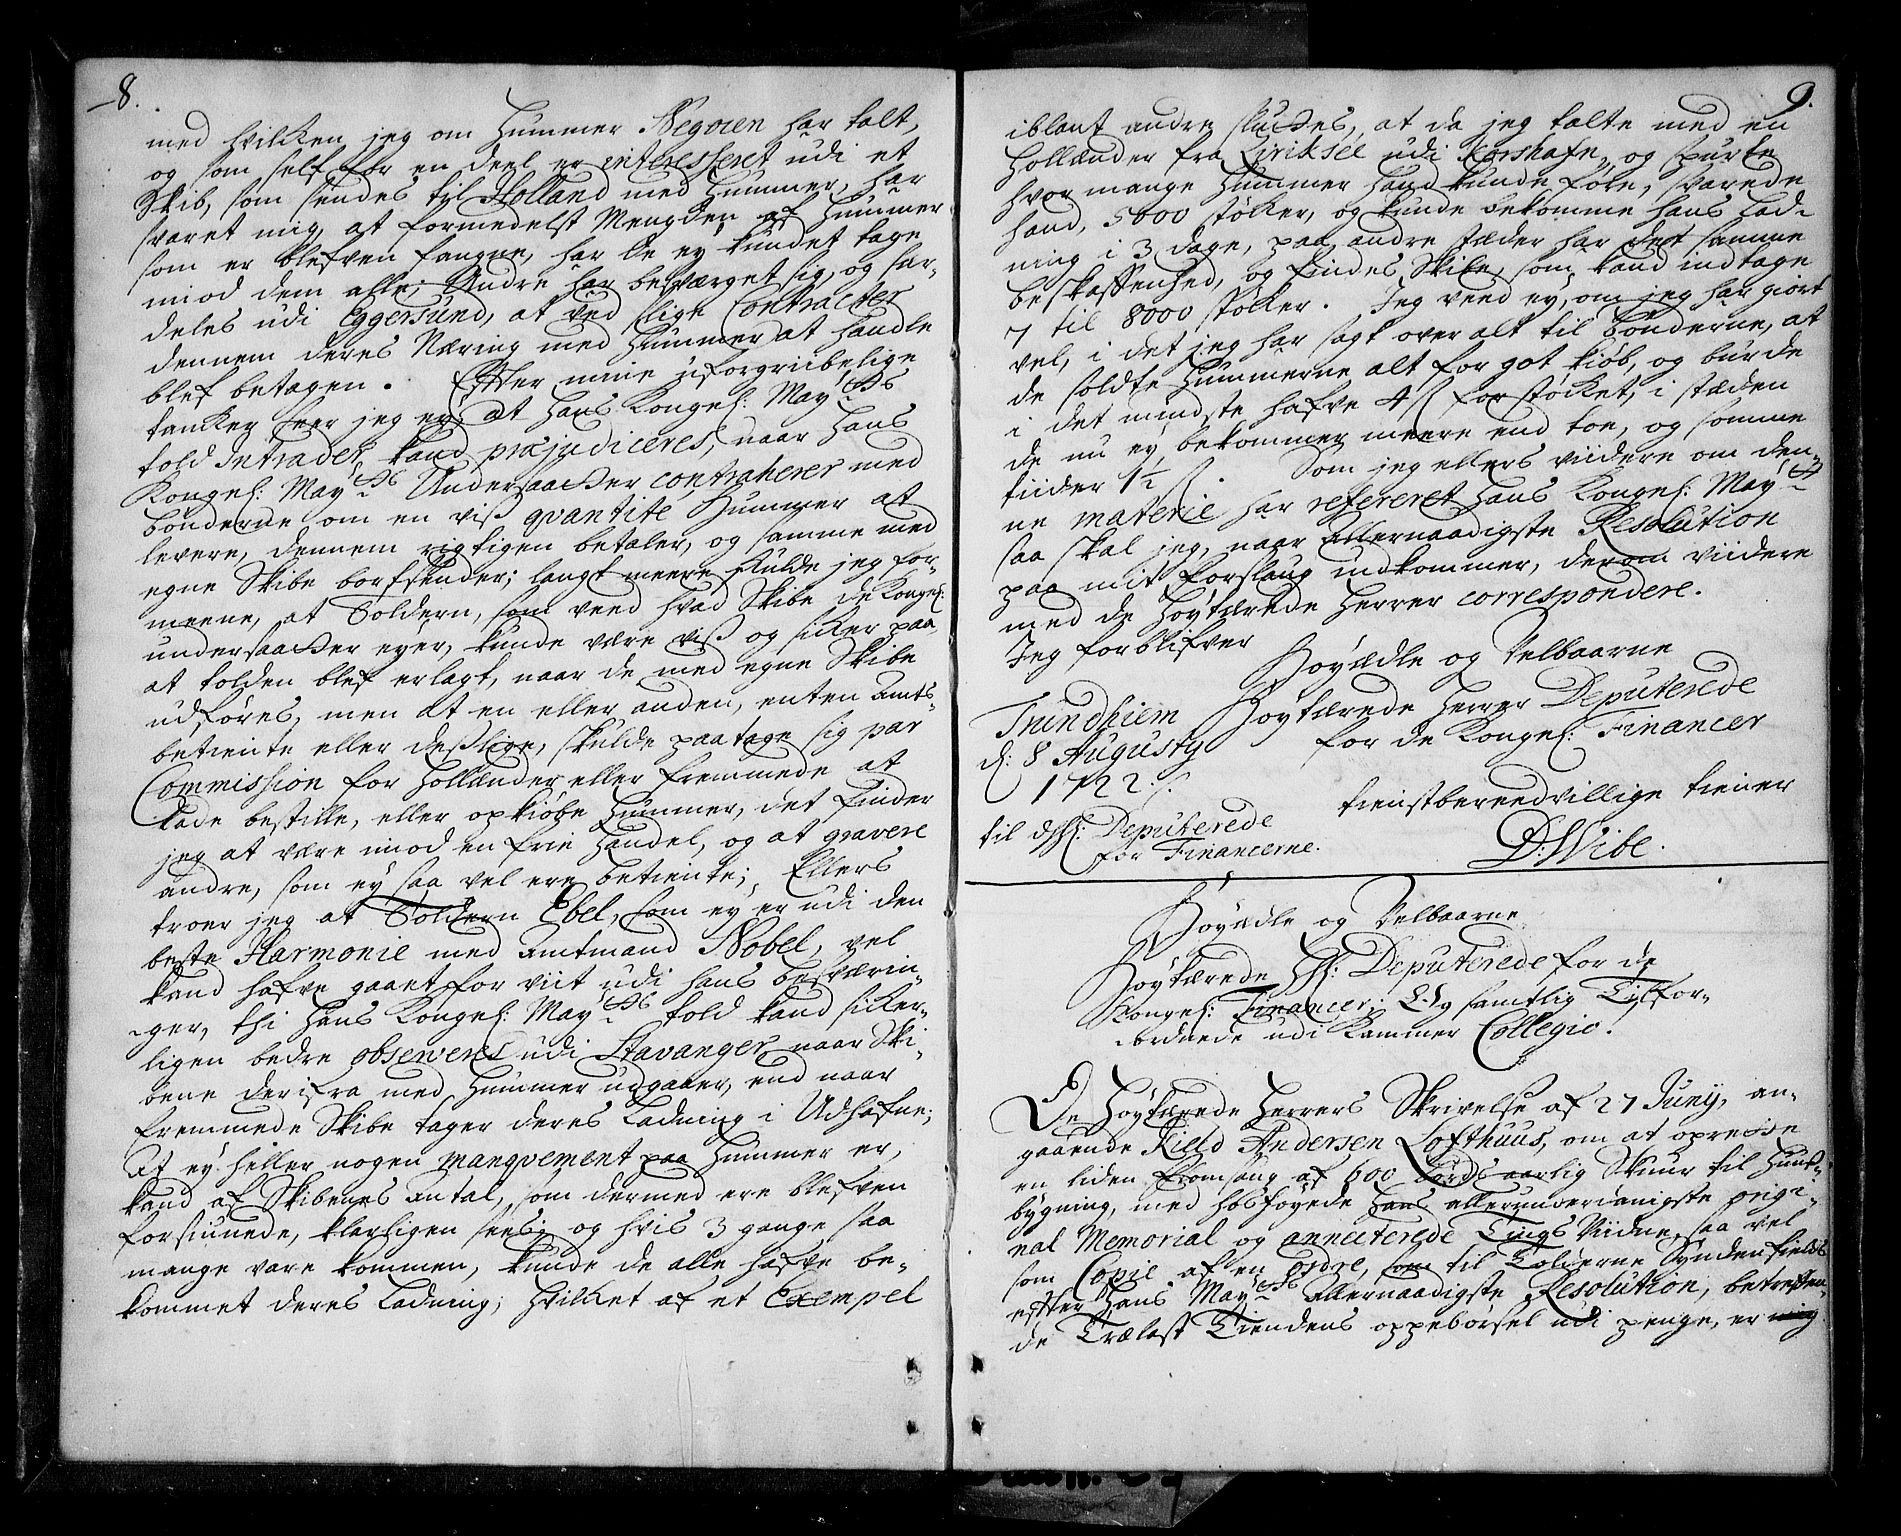 8.
med hvilken jeg om Hummer Negocen har talt,
og som self for en deel er interesseret udi et
Skib, som sendes til Holland med Hummer, har
svaret mig, at formedelst Mengden af Hummer
som er blefven fangne, har de ey kundet tage
imod dem alle; Andre har besværget sig, og sær-
deles udi Eggersund, at ved slige Contracter
dennem deres Næring med Hummer at handle
blef betagen. Effter mine uforgribelige
tancker seer jeg ey, at Hans Kongel: Mayts
told Intrader kand præjudiceres, naar Hans
Kongel: Mayts Undersaatter contraherer med
bønderne om en viss qvantite Hummer at
levere, dennem rigtigen betaler, og samme med
egne Skibe bortsender; langt meere skulde jeg for-
meene, at Tolderen, som veed hvad Skibe de Kongel:
undersaatter eyer, kunde være viss og sicker paa
at tolden blef erlagt, naar de med egne Skibe
udføres, men at en eller anden, enten Amts-
betiente eller desslige, skulde paatage sig par
Commission for Hollænder eller fremmede at
lade bestille, eller opkiøbe Hummer, det finder
jeg at være imod en frie Handel, og at gravere
andre, som ey saa vel ere betiente; Ellers
troer jeg at Tolderen Ebel, som ey er udi den
beste Harmonie med Amtmand Nobel, vel
kand hafve gaaet for viit udi hans besværin-
ger, thi Hans Kongel: Mayts told kand sicker-
ligen bedre observeres udi Stavanger naar Ski-
bene derifra med Hummer udgaaer, end naar
fremmede Skibe tager deres Ladning i Udhafne;
At ey heller nogen manqvement paa Hummer er,
kand af Skibenes Antal, som dermed ere blefven
forsiunede, klarligen sees; og hvis 3 gange saa
mange vare kommen, kunde de alle hafve be-
kommet deres Ladning; hvilket af et Exempel
9.
iblant andre sluttes, at da jeg talte med en
Hollænder fra Ziriksee udi Korshafn, og spurte
hvor mange Hummer hand kunde føre, svarede
hand, 5000 støcker, og kunde bekomme hans Lad-
ning i 3 dage, paa andre stæder har det samme
beskaffenhed, og findes Skibe, som kand indtage
7 til 8000 støcker. Jeg veed ey, om jeg har giort
vel, i det jeg har sagt over alt til bønderne, at
de soldte Hummerne alt for got kiøb, og burde
i det mindste hafve 4 ß for støcket, i stæden
de nu ey bekommer meere end toe, og somme
tiider 1½ ß. Som jeg ellers viidere om den-
ne materie har refereret Hans Kongel: Mayt
saa skal jeg, naar Allernaadigste Resolution
paa mit forslaug indkommer, derom viidere
med de Høytærede Herrer correspondere.
Jeg forblifver
Høyædle og Velbaarne
Høytærede Herrer Deputerede
for de Kongel: Financer
Trundhiem
d: 8 Augusty
1722.
tienstbereedvillige tiener
D: Wibe.
til HH: Deputerede
for Financerne.
Høyædle og Velbaarne
Høytærede HH: Deputerede for de
Kongel: Financer; Og samtlig Tilfor-
ordnede udi Kammer Collegio.
De Høytærede Herrers Skrivelse af 27 Juny, an-
gaaende Kield Andersen Lofthuus, om at oprette
en liden flomsaug af 600 bords aarlig Skuur til Huus-
bygning, med hosføyede Hans allerunderdanigste origi-
nal Memorial og annecterede Tings Viidne, saa vel
som Copie af en Ordre, som til Tolderne Synden fields
effter Hans Mayts Allernaadigste Resolution, betreffen-
de Trælast Tiendens oppebørsel udi penge, er mig